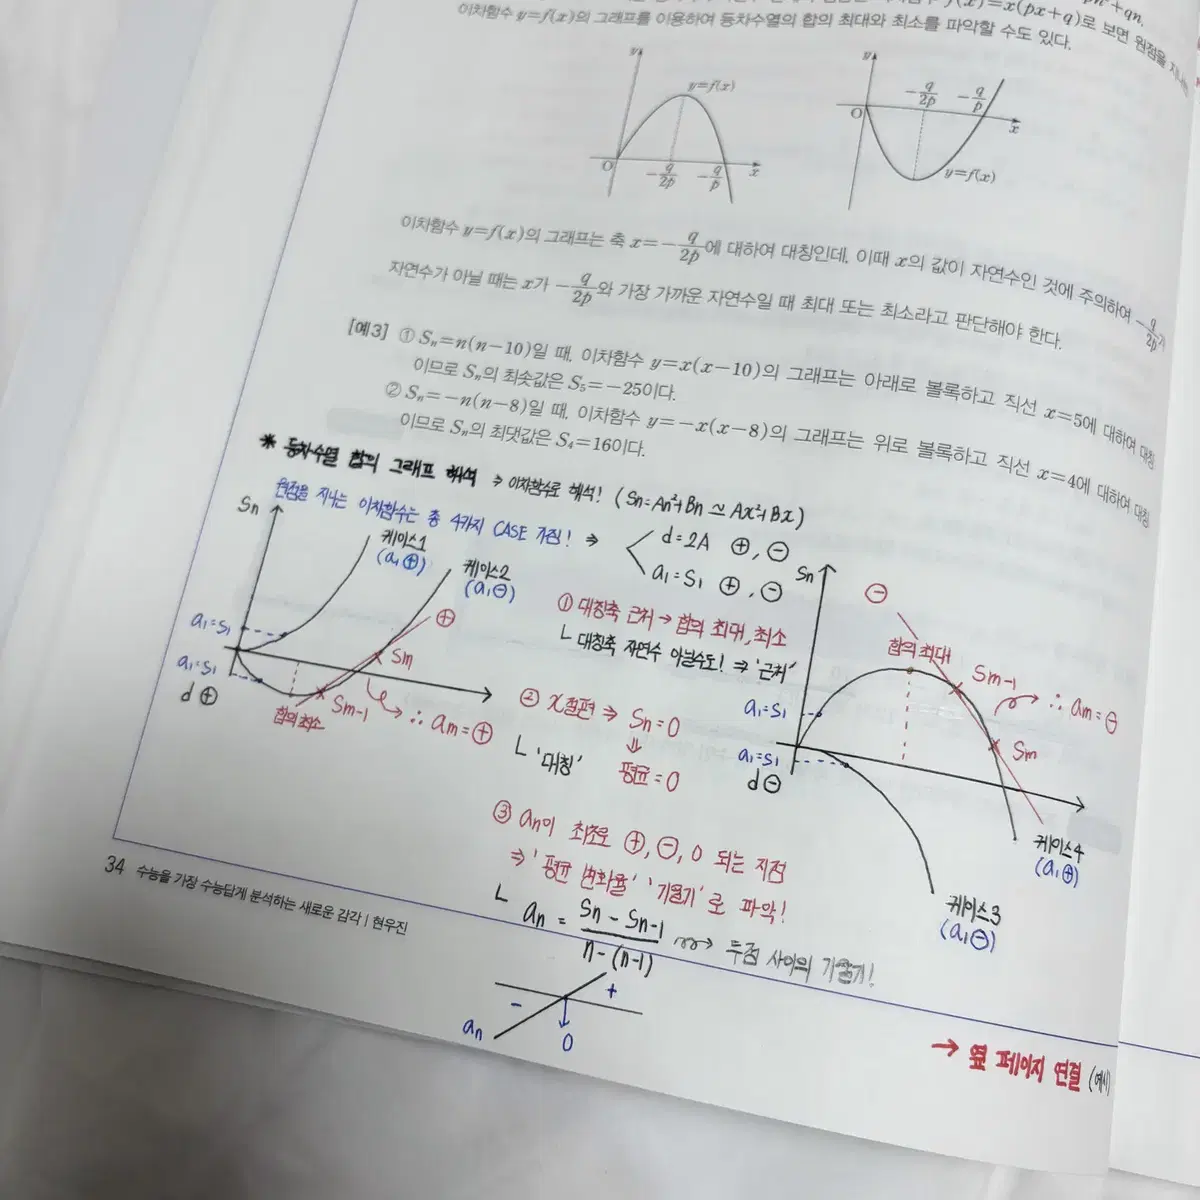 f(x)=x(px+q)로 보면 원점을
이차함수 y=f(x)의 그래프를 이용하여 등차수열의 합의 최대와 최소를 파악할 수도 있다.
y
y=f(x)
O
-q/2p
-q/p
x
y
-q/2p
-q/p
O
x
y=f(x)
이차함수 y=f(x)의 그래프는 축 x=-q/2p에 대하여 대칭인데, 이때 x의 값이 자연수인 것에 주의하여 -q/2p가
자연수가 아닐 때는 x가 -q/2p와 가장 가까운 자연수일 때 최대 또는 최소라고 판단해야 한다.
[예3] ① Sn=n(n-10)일 때, 이차함수 y=x(x-10)의 그래프는 아래로 볼록하고 직선 x=5에 대하여 대칭
이므로 Sn의 최솟값은 S5=-25이다.
② Sn=-n(n-8)일 때, 이차함수 y=-x(x-8)의 그래프는 위로 볼록하고 직선 x=4에 대하여 대칭
이므로 Sn의 최댓값은 S4=16이다.
* 등차수열 합의 그래프 해석 ⇒ 이차함수로 해석! (Sn=An²+Bn ≃ Ax²+Bx)
원점을 지나는 이차함수는 총 4가지 CASE 가짐! ⇒
d=2A ⊕, ⊖
a1=S1 ⊕, ⊖
Sn
케이스1
(a1⊕)
케이스2
(a1⊖)
⊕
a1=S1
a1=S1
d⊕
Sm
Sm-1
합의 최소
∴ am=⊕
① 대칭축 근처 → 합의 최대, 최소
ㄴ 대칭축 자연수 아닐수도! ⇒ '근처'
② x절편 ⇒ Sn=0
⇓
ㄴ '대칭'
평균=0
③ an이 최초로 ⊕, ⊖, 0 되는 지점
⇒ '평균 변화율' '기울기'로 파악!
ㄴ an = Sn - Sn-1 / n-(n-1) → 두점 사이의 기울기!
an
-
+
0
Sn
⊖
합의 최대
Sm-1
∴ am=⊖
Sm
a1=S1
a1=S1
d⊖
케이스4
(a1⊕)
케이스3
(a1⊖)
34 수능을 가장 수능답게 분석하는 새로운 감각 | 현우진
→ 옆 페이지 연결 (예시)